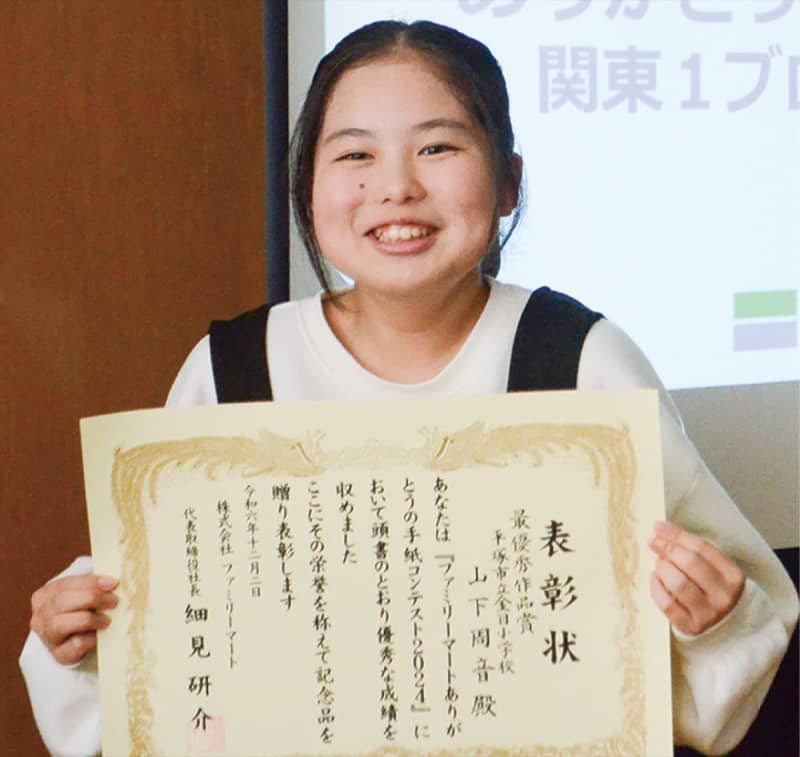 ありがとう
関東1ブロ
表彰状
最優秀作品賞
平塚市立金目小学校
山下周音殿
あなたは『ファミリーマートありが
とうの手紙コンテスト2024』に
おいて頭書のとおり優秀な成績を
収めました
ここにその栄誉を称えて記念品を
贈り表彰します
令和六年十二月二日
株式会社ファミリーマート
代表取締役社長 細見研介